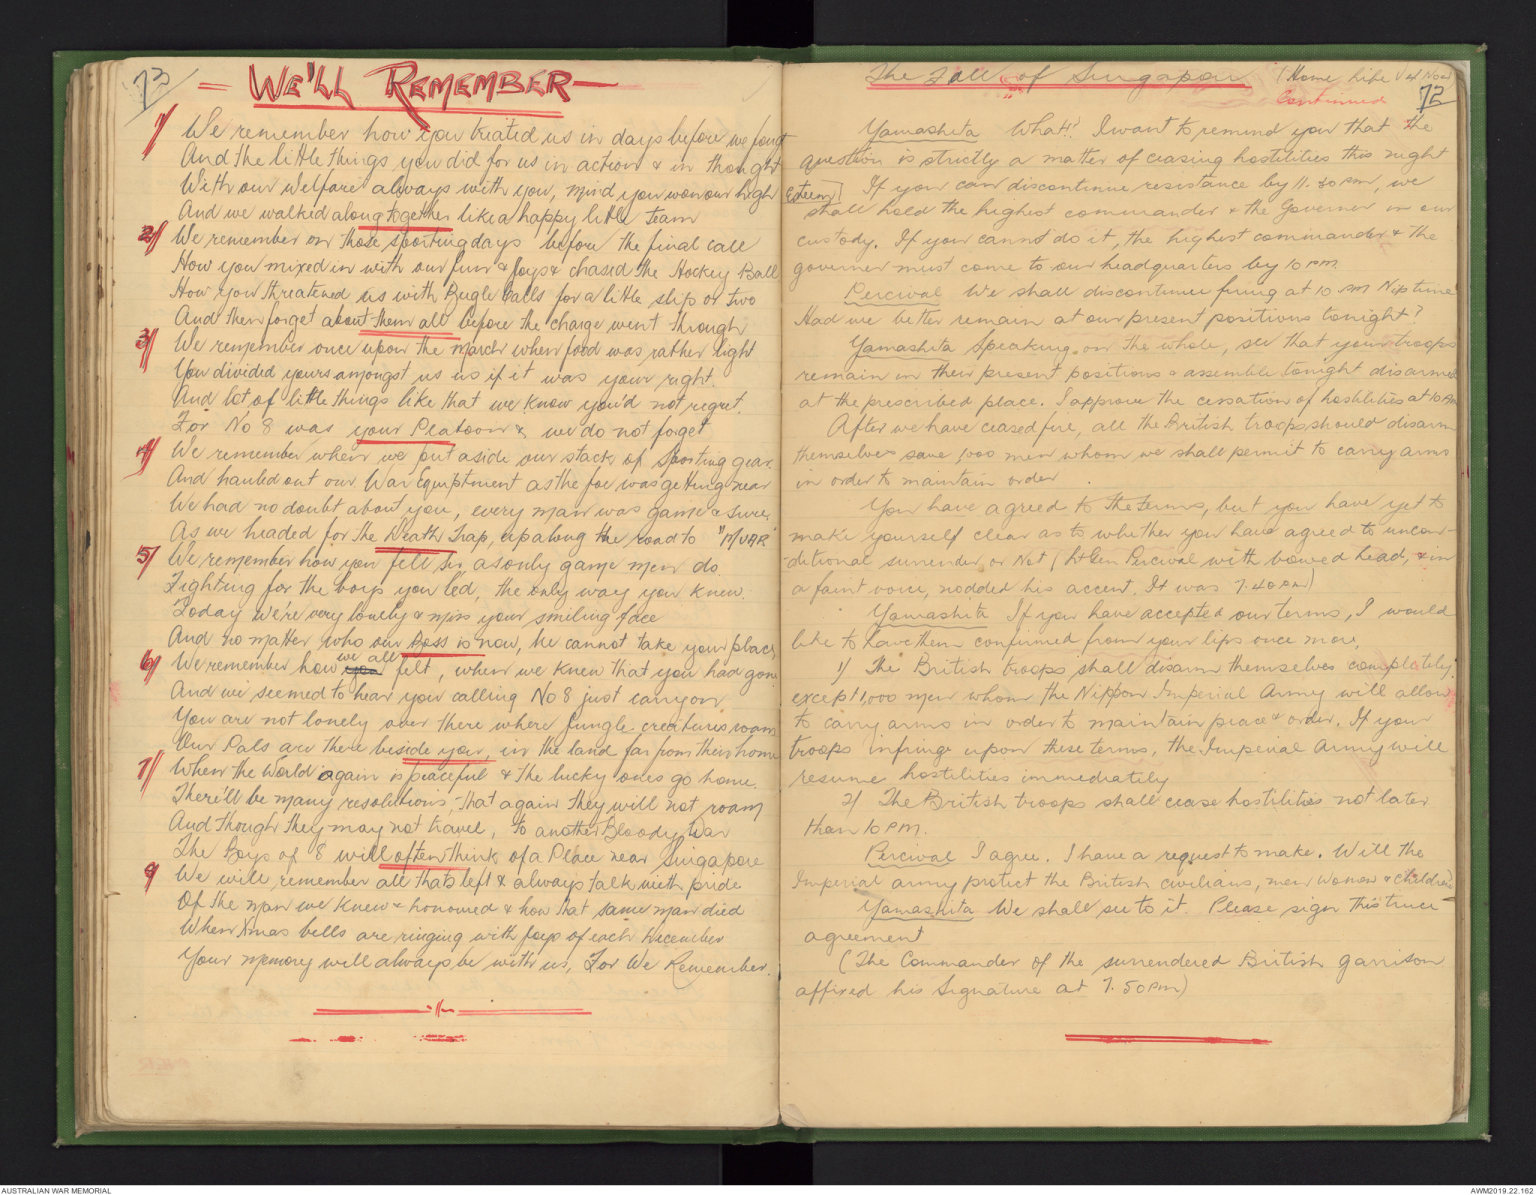 73
WE'LL REMEMBER
1/ We remember how you treated us in days before we fought
And the little things you did for us in action & in thought
With our welfare always with you, mind you won our high
And we walked along together like a happy little team
2/ We remember on those sporting days before the final call
How you mixed in with our fun & joys & chased the Hockey Ball
How you threatened us with Bugle Calls for a little slip or two
And then forget about them all before the charge went through
3/ We remember once upon the march when food was rather light
You divided yours amongst us as if it was your right.
And lot of little things like that we know you'd not regret.
For No 8 was your Platoon & we do not forget
4/ We remember when we put aside our stack of sporting gear.
And hauled out our War Equiptment as the foe was getting near
We had no doubt about you, every man was game & sure.
As we headed for the Death Trap, up along the road to "MUAR"
5/ We remember how you fell Sir as only game men do.
Fighting for the boys you led, the only way you knew.
Today we're very lonely & miss your smiling face
And no matter who our Boss is now, he cannot take your place
6/ We remember how we all felt, when we knew that you had gone
And we seemed to hear you calling No 8 just carry on
You are not lonely over there where Jungle creatures roam
Our Pals are there beside you, in the land far from their home
7/ When the World again is peaceful & the lucky ones go home.
There'll be many resolutions, that again they will not roam
And though they may not travel, to another Bloody War
The Boys of 8 will often think of a Place near Singapore
9 We will remember all thats left & always talk with pride
Of the man we knew & honoured & how that same man died
When Xmas bells are ringing with joys of each December
Your memory will always be with us, For We Remember.
The Fall of Singapore (Home Life
Continued
72
Yamashita What!? I want to remind you that the
question is strictly a matter of ceasing hostilities this night
Esteem] If you can discontinue resistance by 11.30 PM, we
shall hold the highest commander & the Governor in our
custody. If you cannot do it, the highest commander & the
governor must come to our headquarters by 10 PM.
Percival We shall discontinue firing at 10 PM Nip time
Had we better remain at our present positions tonight?
Yamashita Speaking on the whole, see that your troops
remain in their present positions & assemble tonight disarmed
at the prescribed place. I approve the cessation of hostilities at 10 PM
After we have ceased fire, all the British troops should disarm
themselves save 1,000 men whom we shall permit to carry arms
in order to maintain order.
You have agreed to the terms, but you have yet to
make yourself clear as to whether you have agreed to uncon-
-ditional surrender or Not (Lt Gen Percival with bowed head, & in
a faint voice, nodded his accent. It was 7.40 PM)
Yamashita If you have accepted our terms, I would
like to have them confirmed from your lips once more.
1/ The British troops shall disarm themselves completely
except 1,000 men whom the Nippon Imperial Army will allow
to carry arms in order to maintain peace & order. If your
troops infringe upon these terms, the Imperial Army will
resume hostilities immediately
2/ The British troops shall cease hostilities not later
than 10 PM.
Percival I agree. I have a request to make. Will the
Imperial army protect the British civilians, men women & children
Yamashita We shall see to it. Please sign this truce
agreement
(The Commander of the surrendered British garrison
affixed his Signature at 7.50 PM)
AUSTRALIAN WAR MEMORIAL
AWM2019.22.162